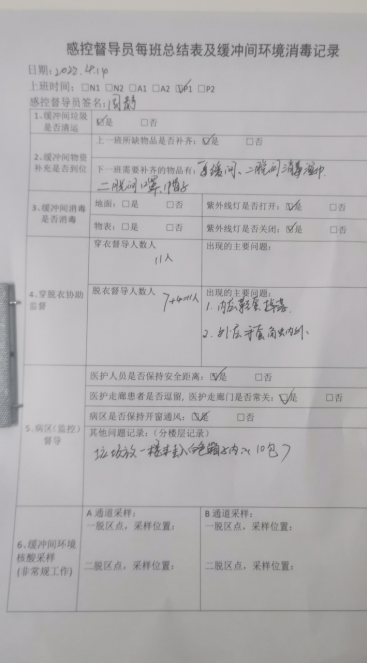 感控督导员每班总结表及缓冲间环境消毒记录
日期：2022.4.14
上班时间：□N1 □N2 □A1 □A2 ☑P1 □P2
感控督导员签名：
1.缓冲间垃圾是否清运 ☑是 □否
2.缓冲间物资补充是否到位
上一班所缺物品是否补齐：☑是 □否
下一班需要补齐的物品有：
3.缓冲间是否消毒
地面：□是 □否 紫外线灯是否打开：☑是 □否
物表：□是 □否 紫外线灯是否关闭：☑是 □否
4.穿脱衣协助监督
穿衣督导人数人 出现的主要问题：
11人
脱衣督导人数人 出现的主要问题：
7+4=11人
1.内层
2.外层
5.病区（监控）督导
医护人员是否保持安全距离：☑是 □否
医护走廊患者是否逗留，医护走廊门是否常关：☑是 □否
病区是否保持开窗通风：☑是 □否
其他问题记录：（分楼层记录）
垃圾放一楼
6.缓冲间环境核酸采样（非常规工作）
A 通道采样： B 通道采样：
一脱区点，采样位置： 一脱区点，采样位置：
二脱区点，采样位置： 二脱区点，采样位置：